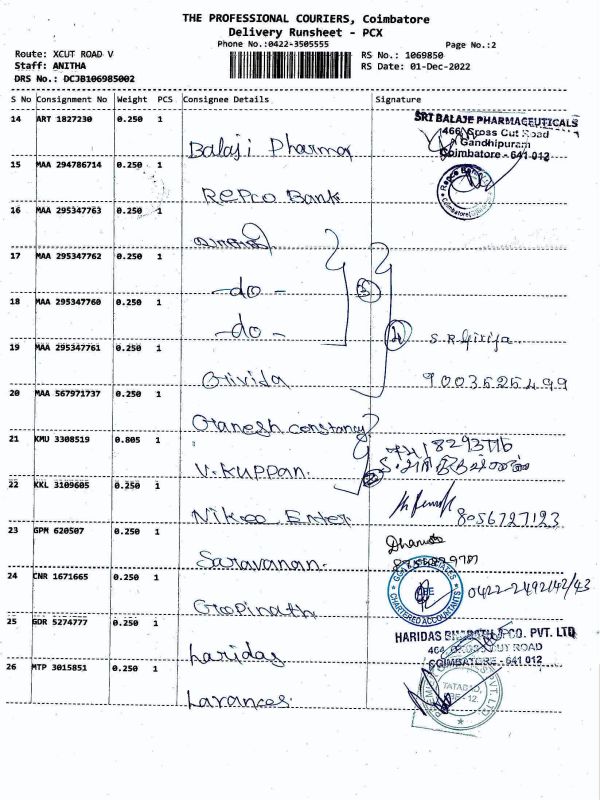 THE PROFESSIONAL COURIERS, Coimbatore
Delivery Runsheet - PCX
Phone No.:0422-3505555
Page No.:2
Route: XCUT ROAD V
RS No.: 1069850
Staff: ANITHA
RS Date: 01-Dec-2022
DRS No.: DCJB106985002
S No Consignment No Weight PCS Consignee Details Signature
14 ART 1827230 0.250 1 Balaji Pharma
SRI BALAJE PHARMACEUTICALS
466 Cross Cut Road
Gandhipuram
Coimbatore - 641 012
15 MAA 294786714 0.250 1 Repco Bank
16 MAA 295347763 0.250 1
17 MAA 295347762 0.250 1 -do-
18 MAA 295347760 0.250 1 -do-
S.R.Girija
19 MAA 295347761 0.250 1
9003525499
20 MAA 567971737 0.250 1 Ganesh
21 KMU 3308519 0.805 1 V.Kuppan.
22 KKL 3109605 0.250 1 Nikoo Enter
8056727123
23 GPM 620507 0.250 1 Saravanan.
24 CNR 1671665 0.250 1 Gopinath
CHARTERED ACCOUNTANTS
0422-2492142/43
25 GOR 5274777 0.250 1 haridas
HARIDAS & CO. PVT. LTD
464 CROSS CUT ROAD
COIMBATORE - 641 012
26 MTP 3015851 0.250 1 Larances
TATABAD,